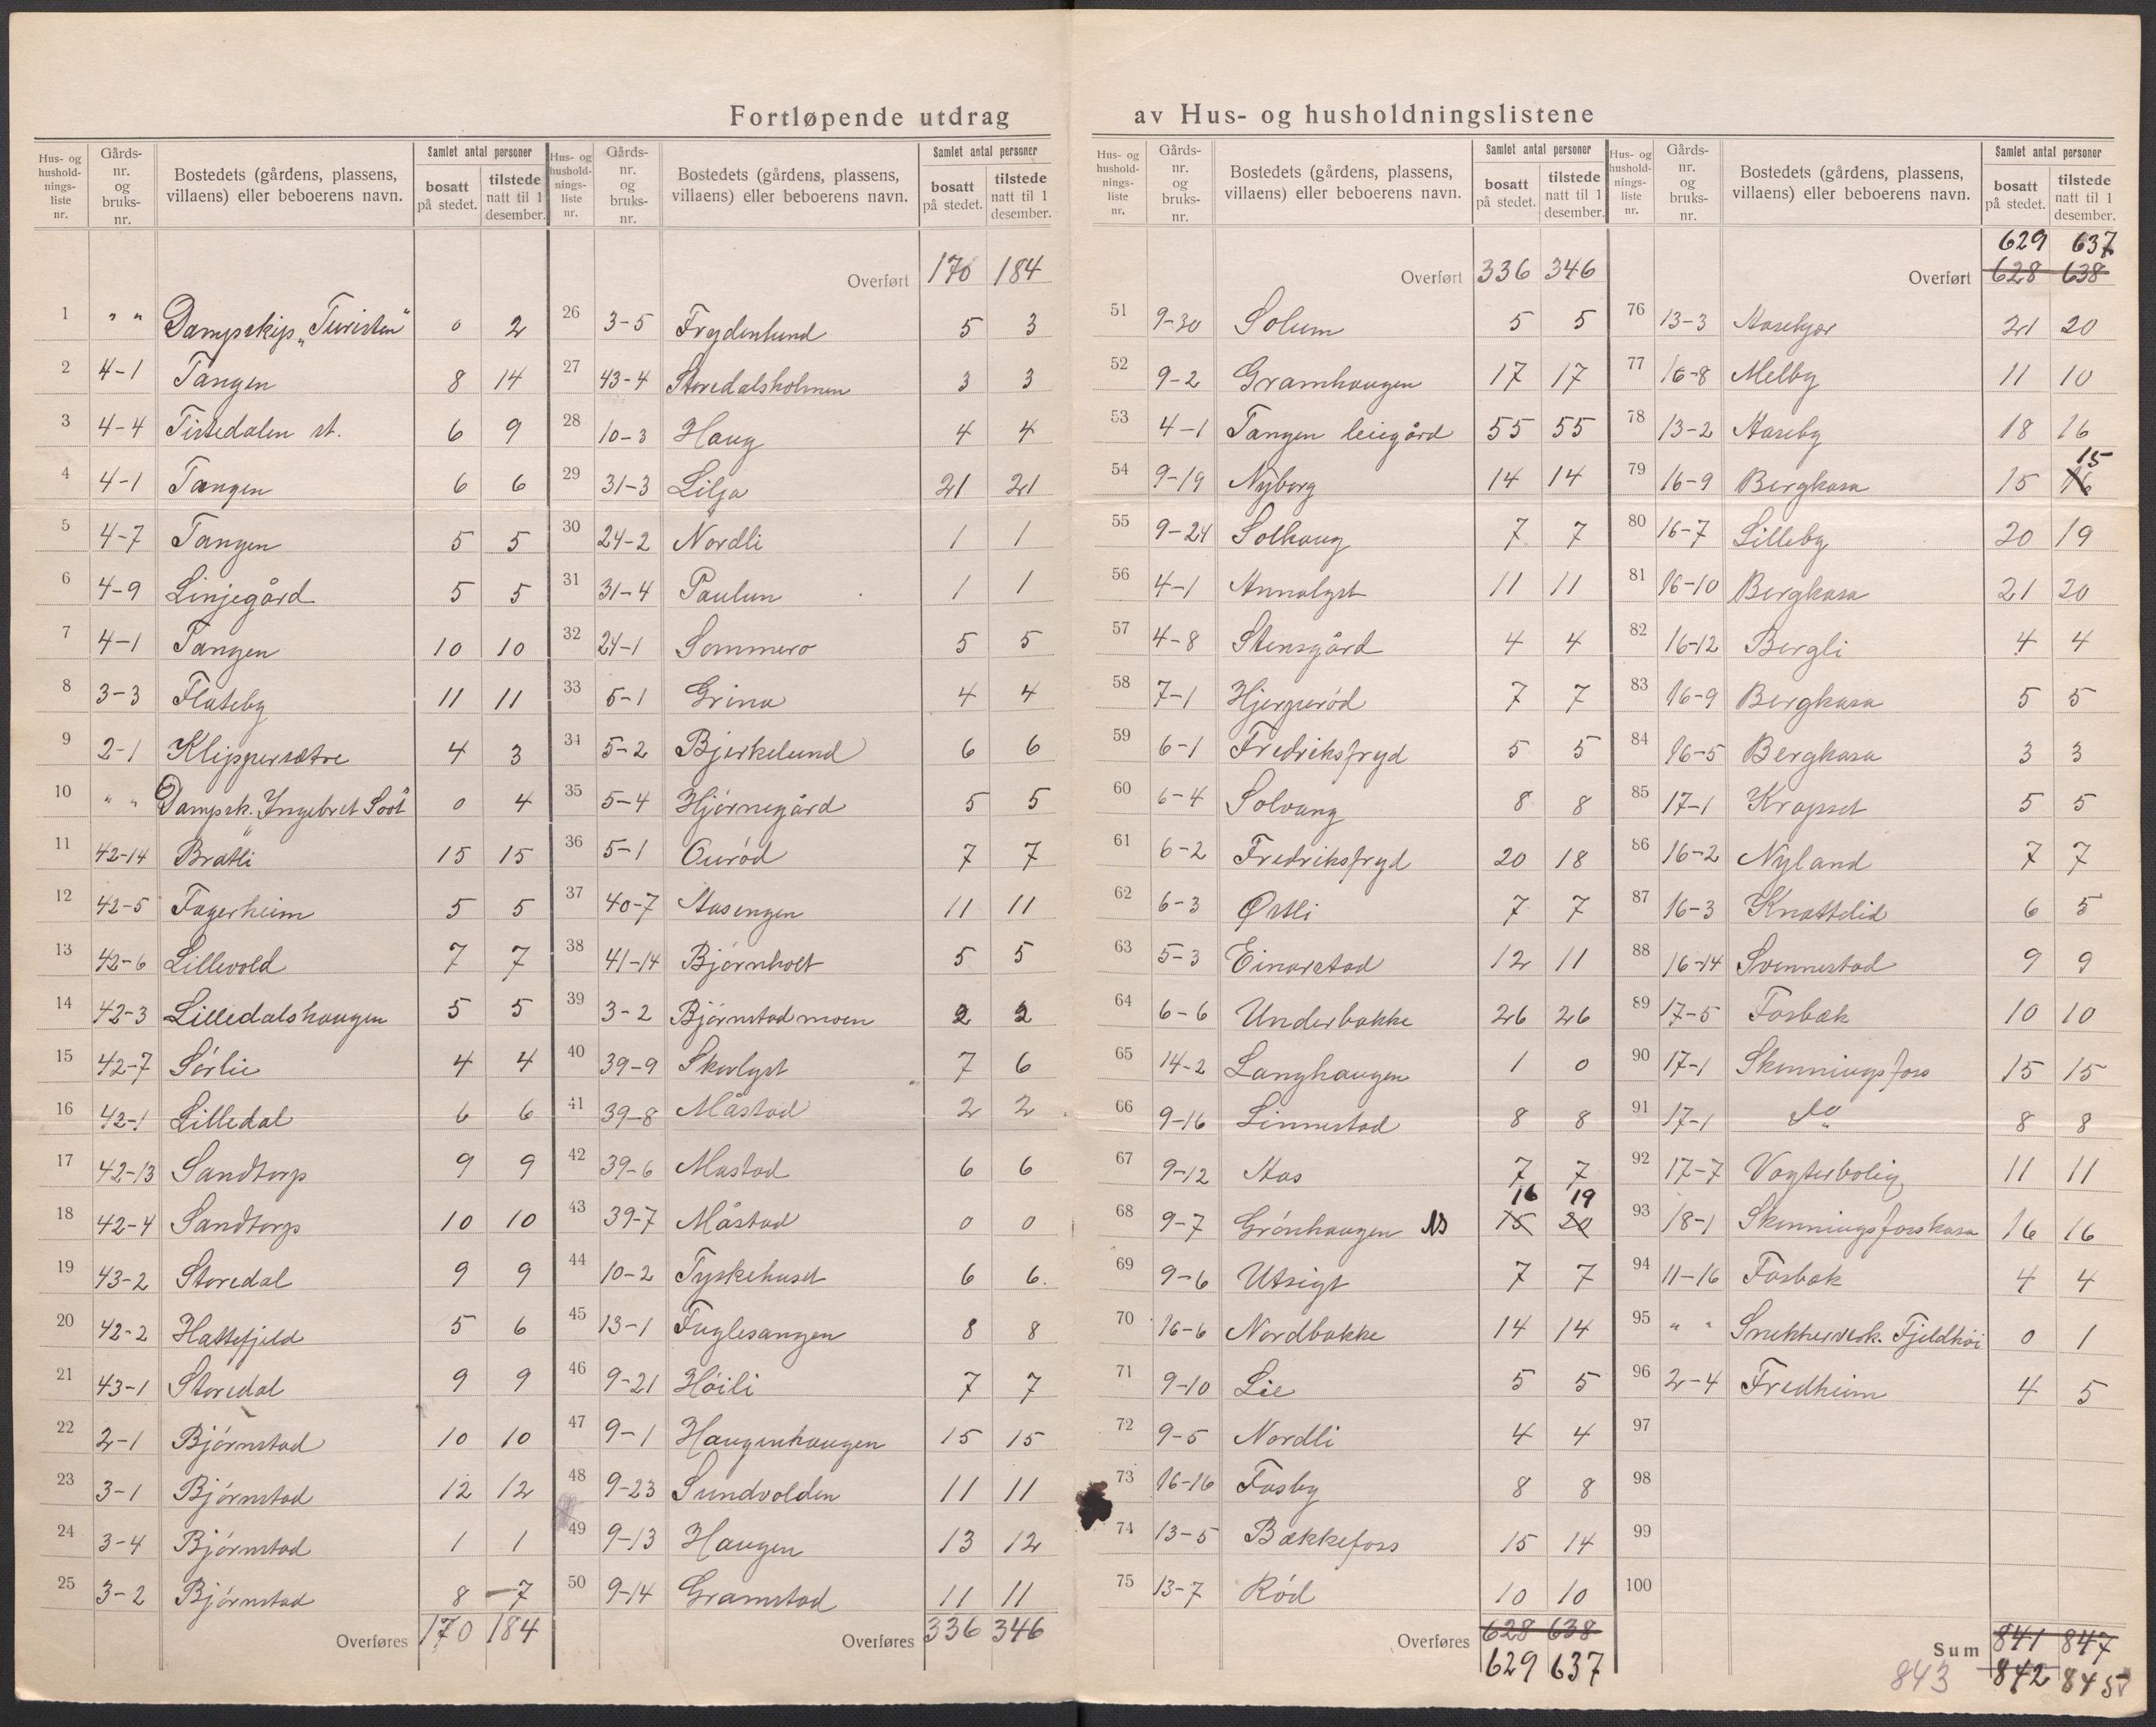 Fortløpende utdrag av Hus- og husholdningslistene
Hus- og husholdnings- liste nr. | Gårds- nr. og bruks- nr. | Bostedets (gårdens, plassens, villaens) eller beboerens navn. | Samlet antal personer | bosatt på stedet. | tilstede natt til 1 desember.
1 " " Dampskip "Turisten" 0 2
2 4-1 Tangen 8 14
3 4-4 Tistedalen st. 6 9
4 4-1 Tangen 6 6
5 4-7 Tangen 5 5
6 4-9 Linjegård 5 5
7 4-1 Tangen 10 10
8 3-3 Flateby 11 11
9 2-1 Klippersætre 4 3
10 " " Dampsk. Ingebret Soot 0 4
11 42-14 Bratli 15 15
12 42-5 Fagerheim 5 5
13 42-6 Lillevold 7 7
14 42-3 Lilledalshaugen 5 5
15 42-7 Sørlie 4 4
16 42-1 Lilledal 6 6
17 42-13 Sandtorp 9 9
18 42-4 Sandtorp 10 10
19 43-2 Storedal 9 9
20 42-2 Hattefjeld 5 6
21 43-1 Storedal 9 9
22 2-1 Bjørnstad 10 10
23 3-1 Bjørnstad 12 12
24 3-4 Bjørnstad 1 1
25 3-2 Bjørnstad 8 7
Overføres 170 184
Hus- og husholdnings- liste nr. | Gårds- nr. og bruks- nr. | Bostedets (gårdens, plassens, villaens) eller beboerens navn. | Samlet antal personer | bosatt på stedet. | tilstede natt til 1 desember.
Overført 170 184
26 3-5 Frydenlund 5 3
27 43-4 Storedalsholmen 3 3
28 10-3 Haug 4 4
29 31-3 Lilja 21 21
30 24-2 Nordli 1 1
31 31-4 Paulun 1 1
32 24-1 Sommero 5 5
33 5-1 Grina 4 4
34 5-2 Bjerkelund 6 6
35 5-4 Hjørnegård 5 5
36 5-1 Ourød 7 7
37 40-7 Aasengen 11 11
38 41-14 Bjørnholt 5 5
39 3-2 Bjørnstadmoen 2 2
40 39-9 Skovlyst 7 6
41 39-8 Måstad 2 2
42 39-6 Mastad 6 6
43 39-7 Måstad 0 0
44 10-2 Tyskehuset 6 6.
45 13-1 Fuglesangen 8 8
46 9-21 Høili 7 7
47 9-1 Haugenhaugen 15 15
48 9-23 Sundvolden 11 11
49 9-13 Haugen 13 12
50 9-14 Gramstad 11 11
Overføres 336 346
Hus- og husholdnings- liste nr. | Gårds- nr. og bruks- nr. | Bostedets (gårdens, plassens, villaens) eller beboerens navn. | Samlet antal personer | bosatt på stedet. | tilstede natt til 1 desember.
Overført 336 346
51 9-30 Solum 5 5
52 9-2 Gramhaugen 17 17
53 4-1 Tangen leiegård 55 55
54 9-19 Nyborg 14 14
55 9-24 Solhaug 7 7
56 4-1 Annalyst 11 11
57 4-8 Stensgård 4 4
58 7-1 Hjerperød 7 7
59 6-1 Fredriksfryd 5 5
60 6-4 Solvang 8 8
61 6-2 Fredriksfryd 20 18
62 6-3 Østli 7 7
63 5-3 Einarstad 12 11
64 6-6 Underbakke 26 26
65 14-2 Langhaugen 1 0
66 9-16 Linnestad 8 8
67 9-12 Aas 7 7
16 19
68 9-7 Grønhaugen 15 20
69 9-6 Utsigt 7 7
70 16-6 Nordbakke 14 14
71 9-10 Lie 5 5
72 9-5 Nordli 4 4
73 16-16 Fosby 8 8
74 13-5 Bækkefoss 15 14
75 13-7 Rød 10 10
Overføres 628 638
629 637
Hus- og husholdnings- liste nr. | Gårds- nr. og bruks- nr. | Bostedets (gårdens, plassens, villaens) eller beboerens navn. | Samlet antal personer | bosatt på stedet. | tilstede natt til 1 desember.
629 637
Overført 628 638
76 13-3 21 20
77 16-8 Melby 11 10
78 13-2 Aaseby 18 16
15
79 16-9 Bergkasa 15 16
80 16-7 Lilleby 20 19
81 16-10 Bergkasa 21 20
82 16-12 Bergli 4 4
83 16-9 Bergkasa 5 5
84 16-5 Bergkasa 3 3
85 17-1 Krapset 5 5
86 16-2 Nyland 7 7
87 16-3 Knattelid 6 5
88 16-14 Svennestad 9 9
89 17-5 Fosbæk 10 10
90 17-1 Skenningsfoss 15 15
91 17-1 do 8 8
92 17-7 Vogterbolig 11 11
93 18-1 Skenningsfosskasa 16 16
94 11-16 Fosbæk 4 4
95 " " Snekkerverk. Fjeldhøi 0 1
96 2-4 Fredheim 4 5
97
98
99
100
Sum 841 847
843 842 845